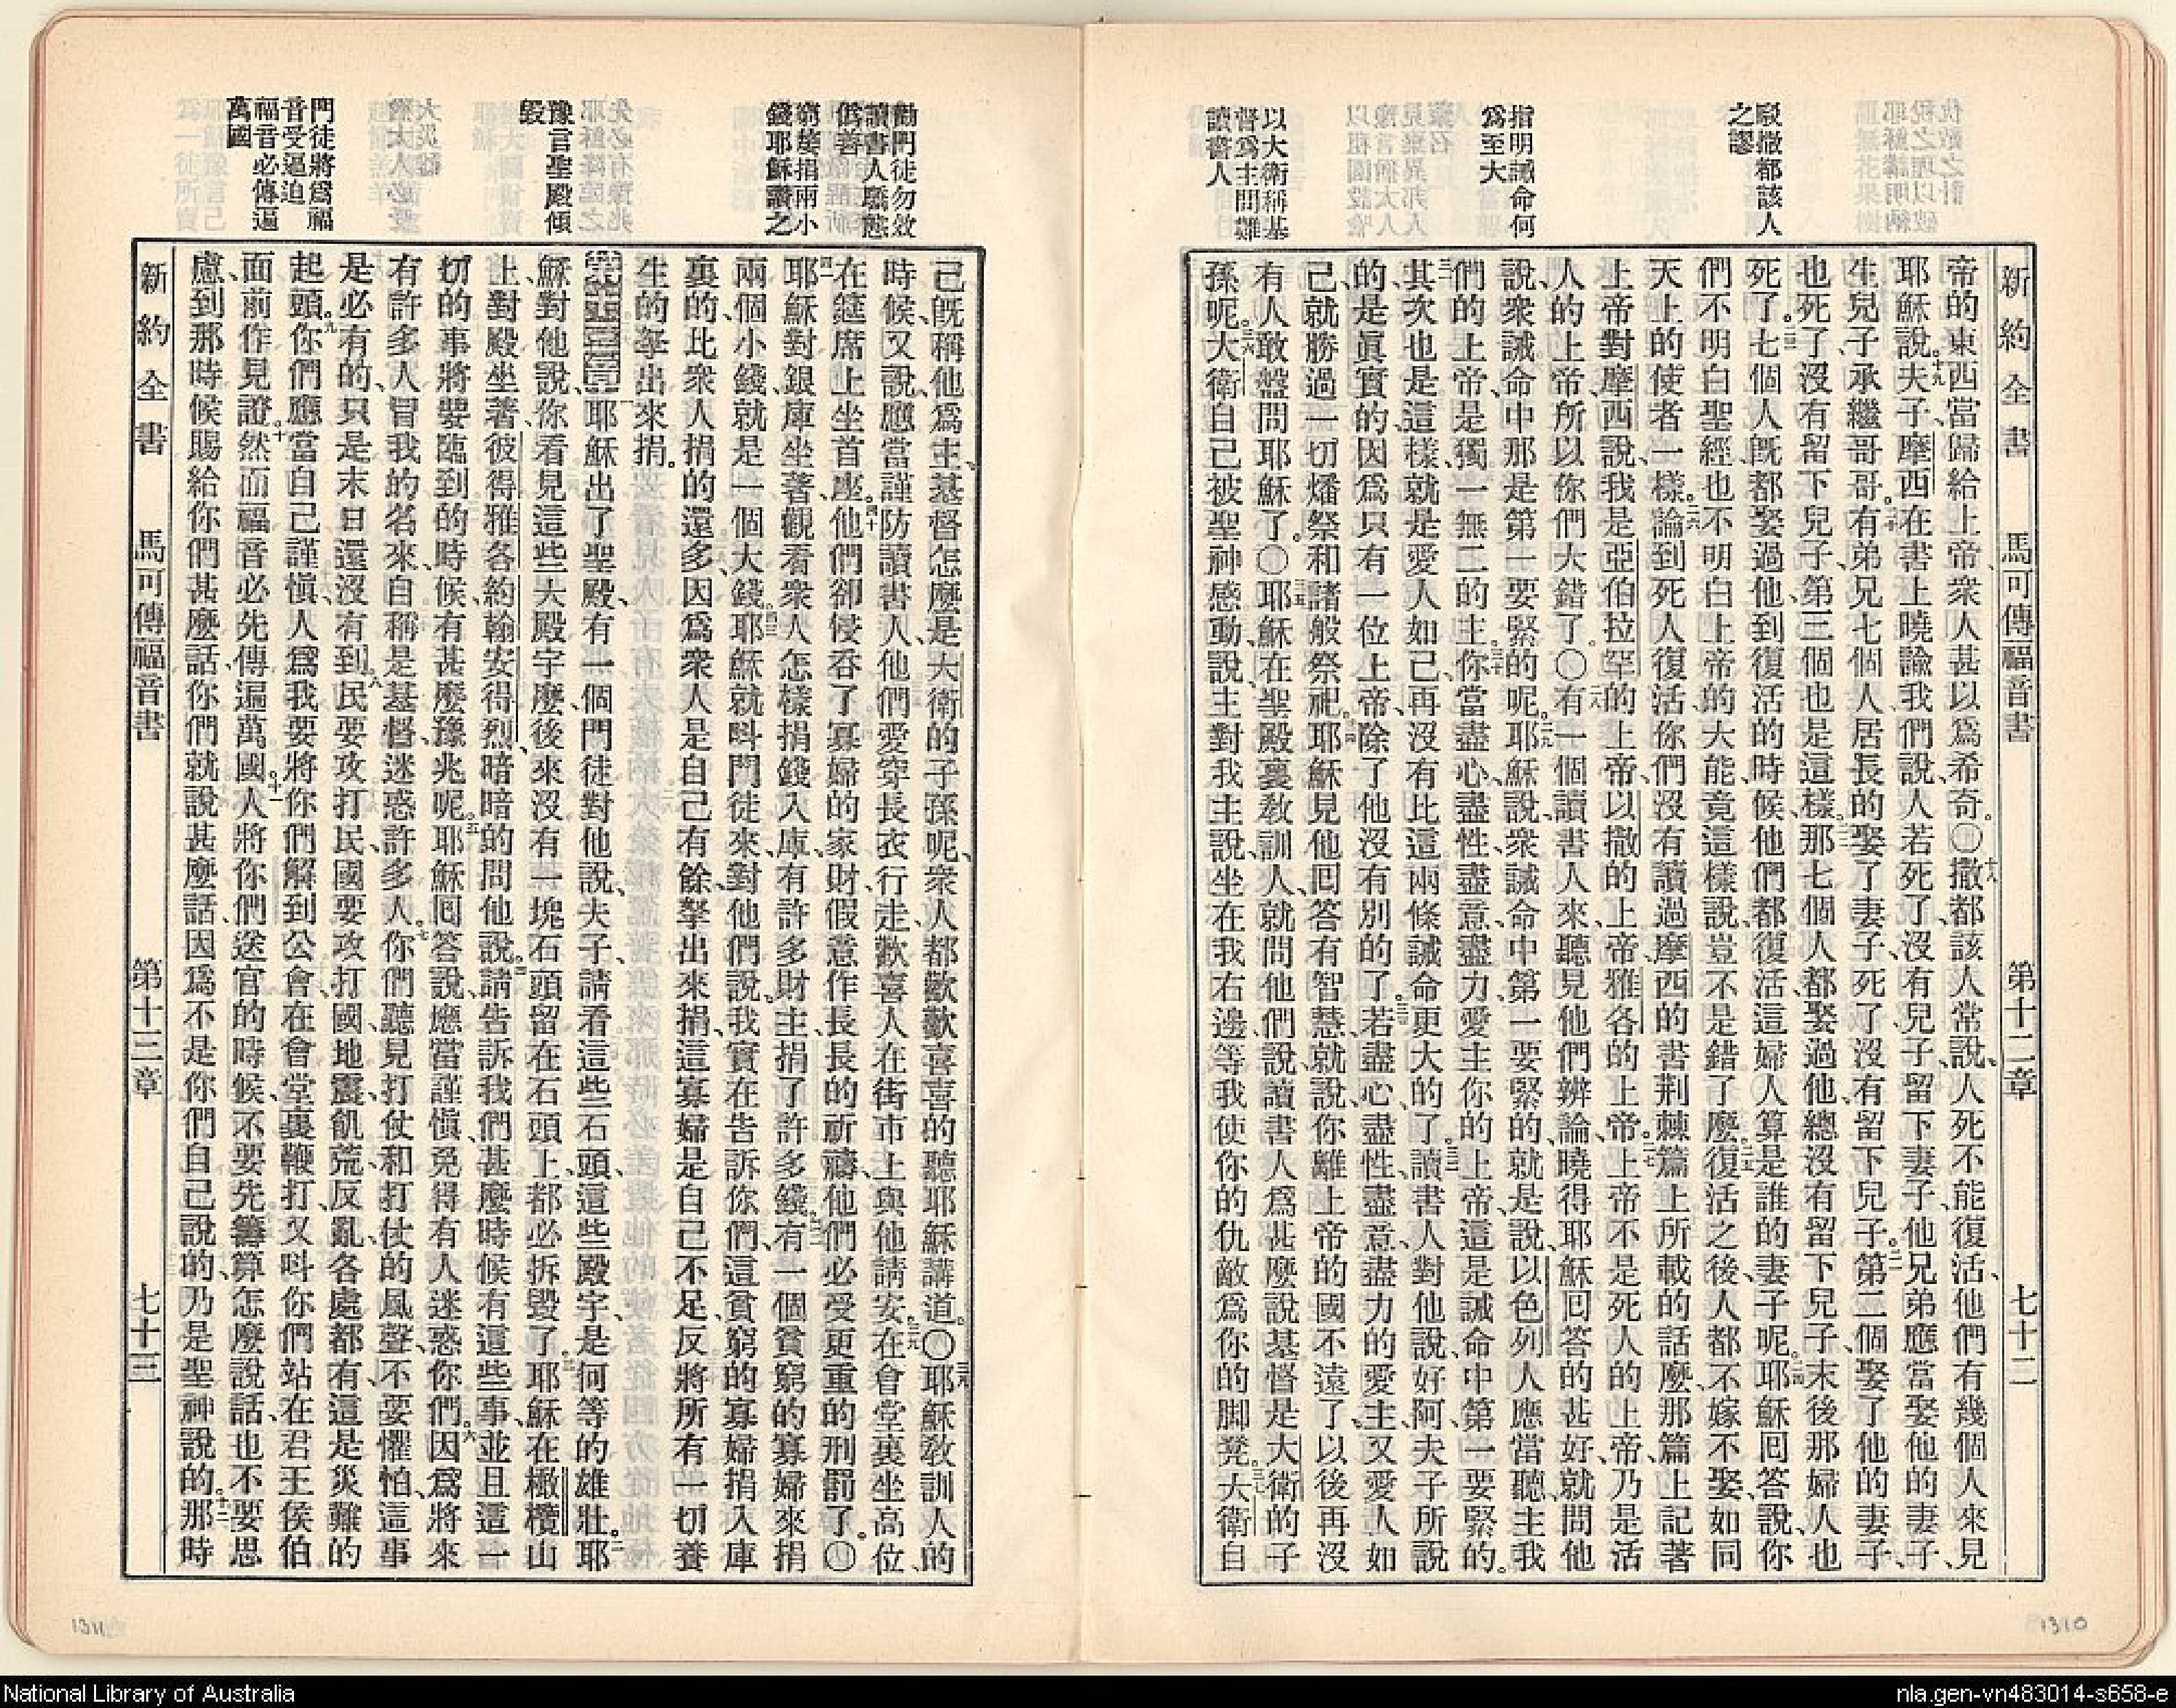 新約全書 馬可傳福音書 第十二章 七十二
駁撒都該人
之謬
指明誡命何
爲至大
以大衛稱基
督爲主問難
讀書人
帝的東西當歸給上帝、衆人甚以爲希奇。〇十八撒都該人常說、人死不能復活、他們有幾個人來見
耶穌說。十九夫子、摩西在書上曉諭我們說、人若死了、沒有兒子、留下妻子、他兄弟應當娶他的妻子、
生兒子承繼哥哥。二十有弟兄七個人、居長的娶了妻子、死了沒有留下兒子。二一第二個娶了他的妻子、
也死了、沒有留下兒子、第三個也是這樣。二二那七個人都娶過他、總沒有留下兒子、末後那婦人也
死了。二三七個人旣都娶過他、到復活的時候、他們都復活、這婦人算是誰的妻子呢。二四耶穌囘答說、你
們不明白聖經、也不明白上帝的大能、竟這樣說、豈不是錯了麼。二五復活之後、人都不嫁不娶、如同
天上的使者一樣。二六論到死人復活、你們沒有讀過摩西的書、荆棘篇上所載的話麼、那篇上記著
上帝對摩西說、我是亞伯拉罕的上帝、以撒的上帝、雅各的上帝。二七上帝不是死人的上帝、乃是活
人的上帝、所以你們大錯了。〇二八有一個讀書人來、聽見他們辨論、曉得耶穌囘答的甚好、就問他
說、衆誡命中那是第一要緊的呢。二九耶穌說、衆誡命中第一要緊的、就是說、以色列人應當聽、主我
們的上帝、是獨一無二的主。三十你當盡心、盡性、盡意、盡力、愛主你的上帝、這是誡命中第一要緊的。
三一其次也是這樣、就是愛人如己、再沒有比這兩條誡命更大的了。三二讀書人對他說、好阿、夫子所說
的是眞實的、因爲只有一位上帝、除了他沒有別的了。三三若盡心、盡性、盡意、盡力的愛主、又愛人如
己、就勝過一切燔祭和諸般祭祀。三四耶穌見他囘答有智慧、就說、你離上帝的國不遠了、以後再沒
有人敢盤問耶穌了。〇三五耶穌在聖殿裏敎訓人、就問他們說、讀書人爲甚麼說基督是大衛的子
孫呢。三六大衛自己被聖神感動、說、主對我主說、坐在我右邊、等我使你的仇敵爲你的脚凳。三七大衛自
勸門徒勿效
讀書人驕態
僞善
窮嫠捐兩小
錢耶穌讚之
豫言聖殿傾
毀
門徒將爲福
音受逼迫
福音必傳遍
萬國
己旣稱他爲主、基督怎麼是大衛的子孫呢、衆人都歡歡喜喜的聽耶穌講道。〇三八耶穌敎訓人的
時候、又說、應當謹防讀書人、他們愛穿長衣行走、歡喜人在街市上與他請安。三九在會堂裏坐高位、
在筵席上坐首座。四十他們卻侵吞了寡婦的家財、假意作長長的祈禱、他們必受更重的刑罰了。〇
四一耶穌對銀庫坐著、觀看衆人怎樣捐錢入庫、有許多財主捐了許多錢。四二有一個貧窮的寡婦來、捐
兩個小錢、就是一個大錢。四三耶穌就叫門徒來、對他們說、我實在告訴你們、這貧窮的寡婦捐入庫
裏的、比衆人捐的還多、四四因爲衆人是自己有餘、拏出來捐、這寡婦是自己不足、反將所有一切養
生的、拏出來捐。
第十三章 一耶穌出了聖殿、有一個門徒對他說、夫子、請看這些石頭、這些殿宇、是何等的雄壯。二耶
穌對他說、你看見這些大殿宇麼、後來沒有一塊石頭留在石頭上、都必拆毀了。三耶穌在橄欖山
上對殿坐著、彼得、雅各、約翰、安得烈、暗暗的問他說。四請告訴我們、甚麼時候有這些事、並且這一
切的事將要臨到的時候、有甚麼豫兆呢。五耶穌囘答說、應當謹愼、免得有人迷惑你們。六因爲將來
有許多人冒我的名來、自稱是基督、迷惑許多人。七你們聽見打仗和打仗的風聲、不要懼怕、這事
是必有的、只是末日還沒有到。八民要攻打民、國要攻打國、地震、飢荒、反亂、各處都有、這是災難的
起頭。九你們應當自己謹愼、人爲我要將你們解到公會、在會堂裏鞭打、又叫你們站在君王侯伯
面前作見證。十然而福音必先傳遍萬國。十一人將你們送官的時候、不要先籌算怎麼說話、也不要思
慮、到那時候、賜給你們甚麼話、你們就說甚麼話、因爲不是你們自己說的、乃是聖神說的。十二那時
新約全書 馬可傳福音書 第十三章 七十三
1311
1310
National Library of Australia
nla.gen-vn483014-s658-e